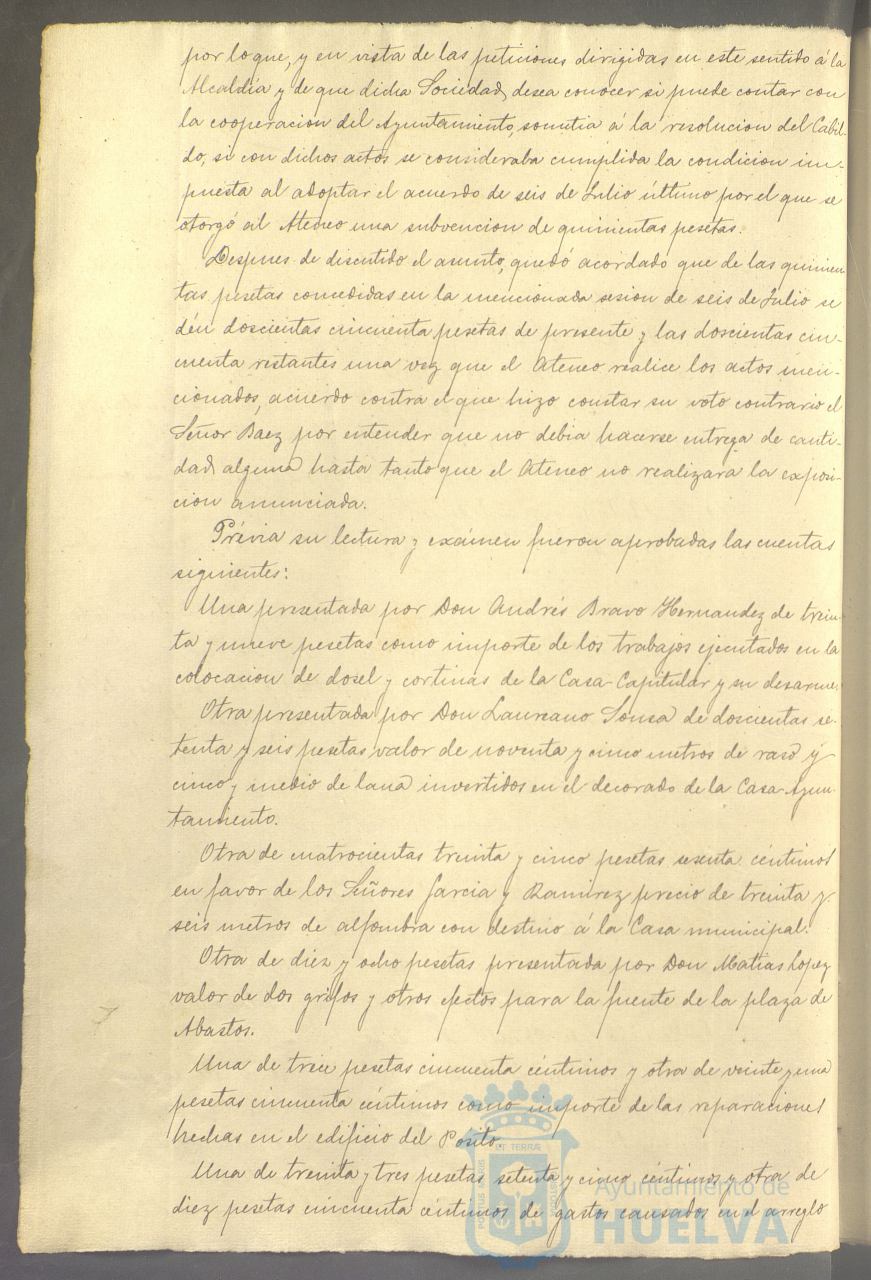 por lo que, y en vista de las peticiones dirigidas en este sentido á la
Alcaldía y de que dicha Sociedad, desea conocer si puede contar con
la cooperacion del Ayuntamiento, sometia á la resolucion del Cabil-
do, si con dichos actos se consideraba cumplida la condicion im-
puesta al adoptar el acuerdo de seis de Julio último por el que se
otorgó al Ateneo una subvencion de quinientas pesetas.
Despues de discutido el asunto, quedó acordado que de las quinien
tas pesetas concedidas en la mencionada sesion de seis de Julio se
dén doscientas cincuenta pesetas de presente y las doscientas cin-
cuenta restantes una vez que el Ateneo realice los actos men-
cionados, acuerdo contra el que hizo constar su voto contrario el
Señor Baez por entender que no debia hacerse entrega de canti-
dad alguna hasta tanto que el Ateneo no realizara la exposi-
cion anunciada.
Prévia su lectura y exámen fueron aprobadas las cuentas
siguientes:
Una presentada por Don Andrés Bravo Hernandez de trein-
ta y nueve pesetas como importe de los trabajos ejecutados en la
colocacion de dosel y cortinas de la Casa-Capitular y su desarme.
Otra presentada por Don Laureano Sousa de doscientas se-
tenta y seis pesetas valor de noventa y cinco metros de raso y
cinco y medio de lana invertidos en el decorado de la Casa-Ayun-
tamiento.
Otra de cuatrocientas treinta y cinco pesetas sesenta céntimos
en favor de los Señores Garcia y Ramirez precio de treinta y
seis metros de alfombra con destino á la Casa municipal.
Otra de diez y ocho pesetas presentada por Don Matias Lopez
valor de dos grifos y otros efectos para la fuente de la plaza de
Abastos.
Una de trece pesetas cincuenta céntimos y otra de veinte y una
pesetas cincuenta céntimos como importe de las reparaciones
hechas en el edificio del Posito.
Una de treinta y tres pesetas setenta y cinco céntimos y otra de
diez pesetas cincuenta céntimos de gastos causados en el arreglo
PORTUS MARIS ET TERRÆ CUSTODIA
Ayuntamiento de
HUELVA